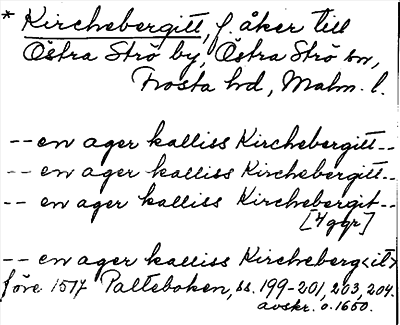 * Kirchebergitt, f. åker till
Östra Strö by, Östra Strö sn,
Frosta hd, Malm. l.
-- en ager kalliss Kirchebergitt--
-- en ager kalliss Kirchebergitt--
-- en ager kalliss Kirchebergit--
[4 ggr]
-- en ager kalliss Kircheberg<it>
före 1517 Palteboken, ss. 199-201, 203, 204.
avskr. o. 1650.